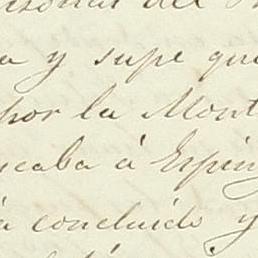 del
a y supe que
por la Mont
caba á Espin
á concluido y